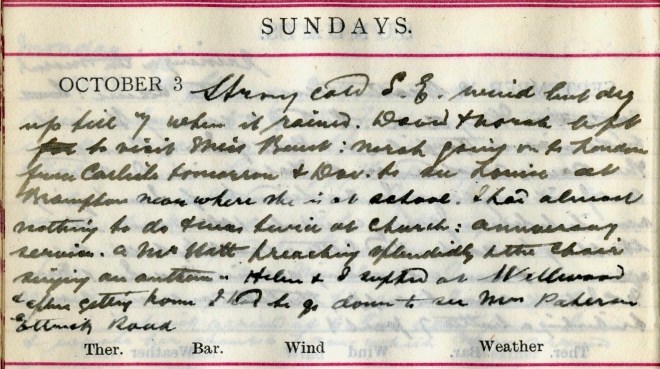 SUNDAYS.
OCTOBER 3 Strong cold S. E. wind but dry
up till 7 when it rained. David & Norah left
to visit Miss : Norah going on to London
from Carlisle tomorrow & Dav. to see Louise at
Brampton near where she is at school. I had almost
nothing to do & was twice at church: anniversary
service. a Mr Watt preaching splendidly & the Choir
singing an anthem. Helen & I supped at Wellwood
& after getting home I had to go down to see Mrs Paterson
Ettrick Road
Ther. Bar. Wind Weather